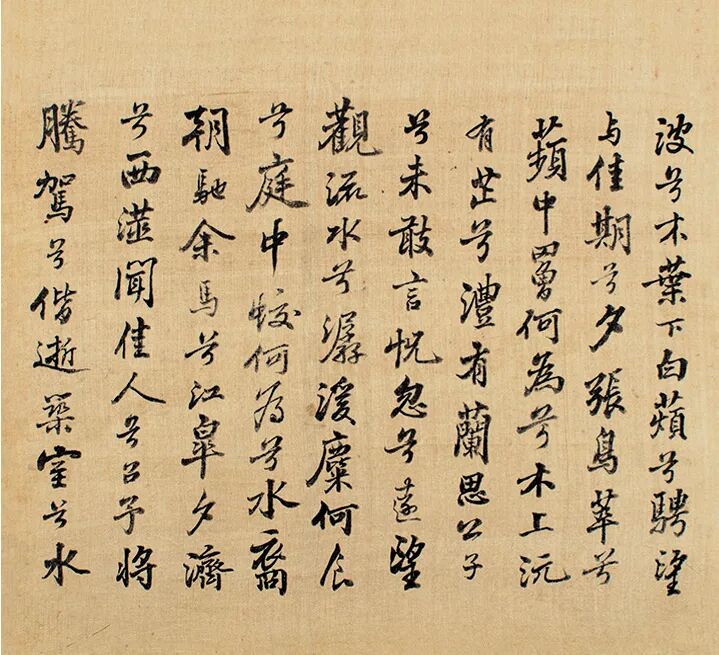 波兮木葉下白薠兮騁望
与佳期兮夕張鳥萃兮
蘋中罾何為兮木上沅
有茝兮澧有蘭思公子
兮未敢言怳忽兮遠望
觀流水兮潺湲麋何食
兮庭中蛟何為兮水裔
朝馳余馬兮江皋夕濟
兮西澨聞佳人兮召予將
騰駕兮偕逝築室兮水